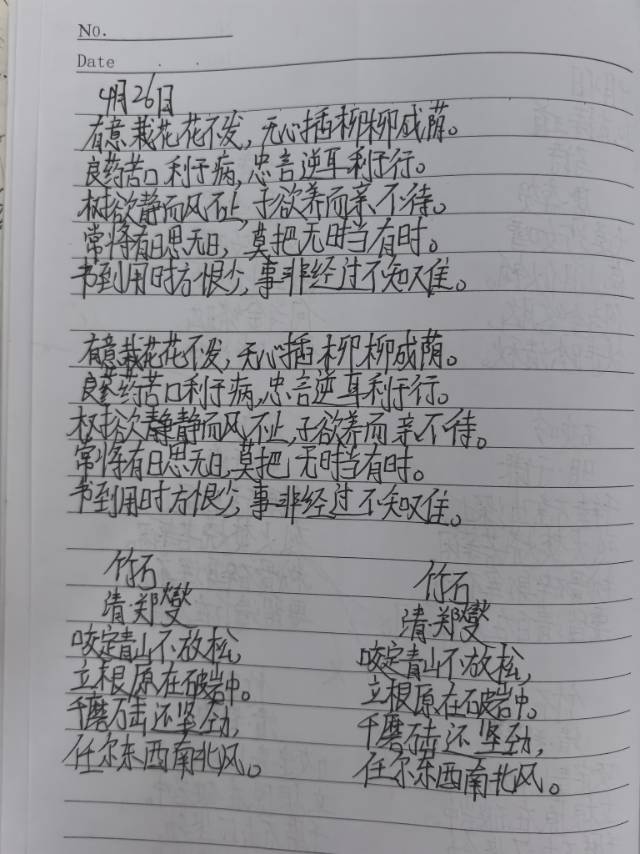 No.
Date
4月26日
有意栽花花不发，无心插柳柳成荫。
良药苦口利于病，忠言逆耳利于行。
树欲静而风不止，子欲养而亲不待。
常将有日思无日，莫把无时当有时。
书到用时方恨少，事非经过不知难。
有意栽花花不发，无心插柳柳成荫。
良药苦口利于病，忠言逆耳利于行。
树欲静静而风不止，子欲养而亲不待。
常将有日思无日，莫把无时当有时。
书到用时方恨少，事非经过不知难。
竹石
清·郑燮
咬定青山不放松，
立根原在破岩中。
千磨击还坚劲，
任尔东西南北风。
竹石
清·郑燮
咬定青山不放松，
立根原在破岩中。
千磨击还坚劲，
任尔东西南北风。